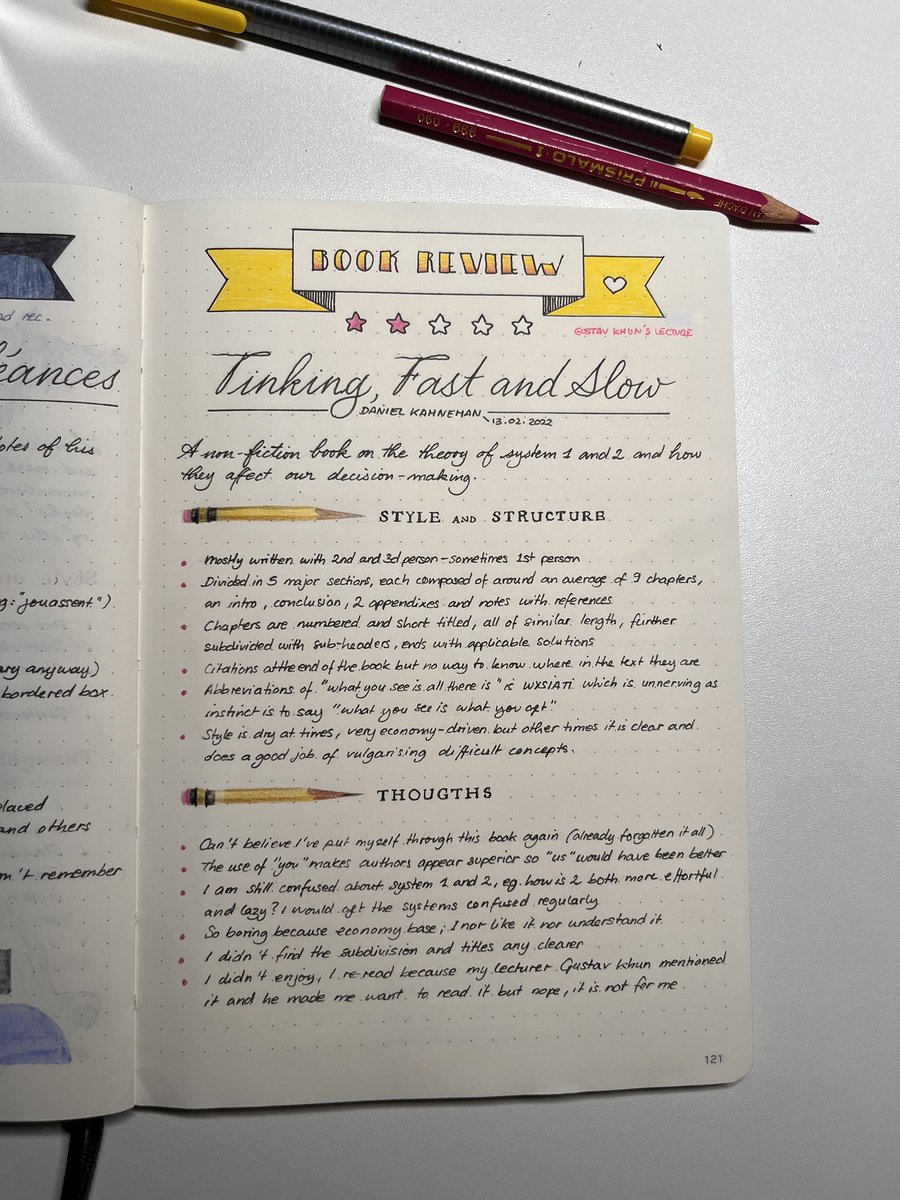 PRISMALO I
999 · 090
AN D'ACHE
BOOK REVIEW
GUSTAV KHUN'S LECTURE
Tinking, Fast and Slow
DANIEL KAHNEMAN
13.02.2022
A non-fiction book on the theory of system 1 and 2 and how
they affect our decision-making.
STYLE AND STRUCTURE
mostly written with 2nd and 3d person - sometimes 1st person
Divided in 5 major sections, each composed of around an average of 9 chapters,
an intro, conclusion, 2 appendixes and notes with references
Chapters are numbered and short titled, all of similar length, further
subdivided with sub-headers, ends with applicable solutions
Citations at the end of the book but no way to know where in the text they are
Abbreviations of "what you see is all there is" is WYSIATI which is unnerving as
instinct is to say "what you see is what you get"
Style is dry at times, very economy-driven but other times it is clear and
does a good job of vulgarising difficult concepts.
THOUGTHS
Can't believe I've put myself through this book again (already forgotten it all)
The use of "you" makes authors appear superior so "us" would have been better
I am still confused about system 1 and 2, eg. how is 2 both more effortful
and lazy? I would get the systems confused regularly
So boring because economy base; I nor like it nor understand it
I didn't find the subdivision and titles any clearer
I didn't enjoy, I re-read because my lecturer Gustav Khun mentioned
it and he made me want to read it but nope, it is not for me
121
nd rec.
éances
otes of his
g: "jouassent")
ary anyway)
bordered box
placed
and others
m't remember